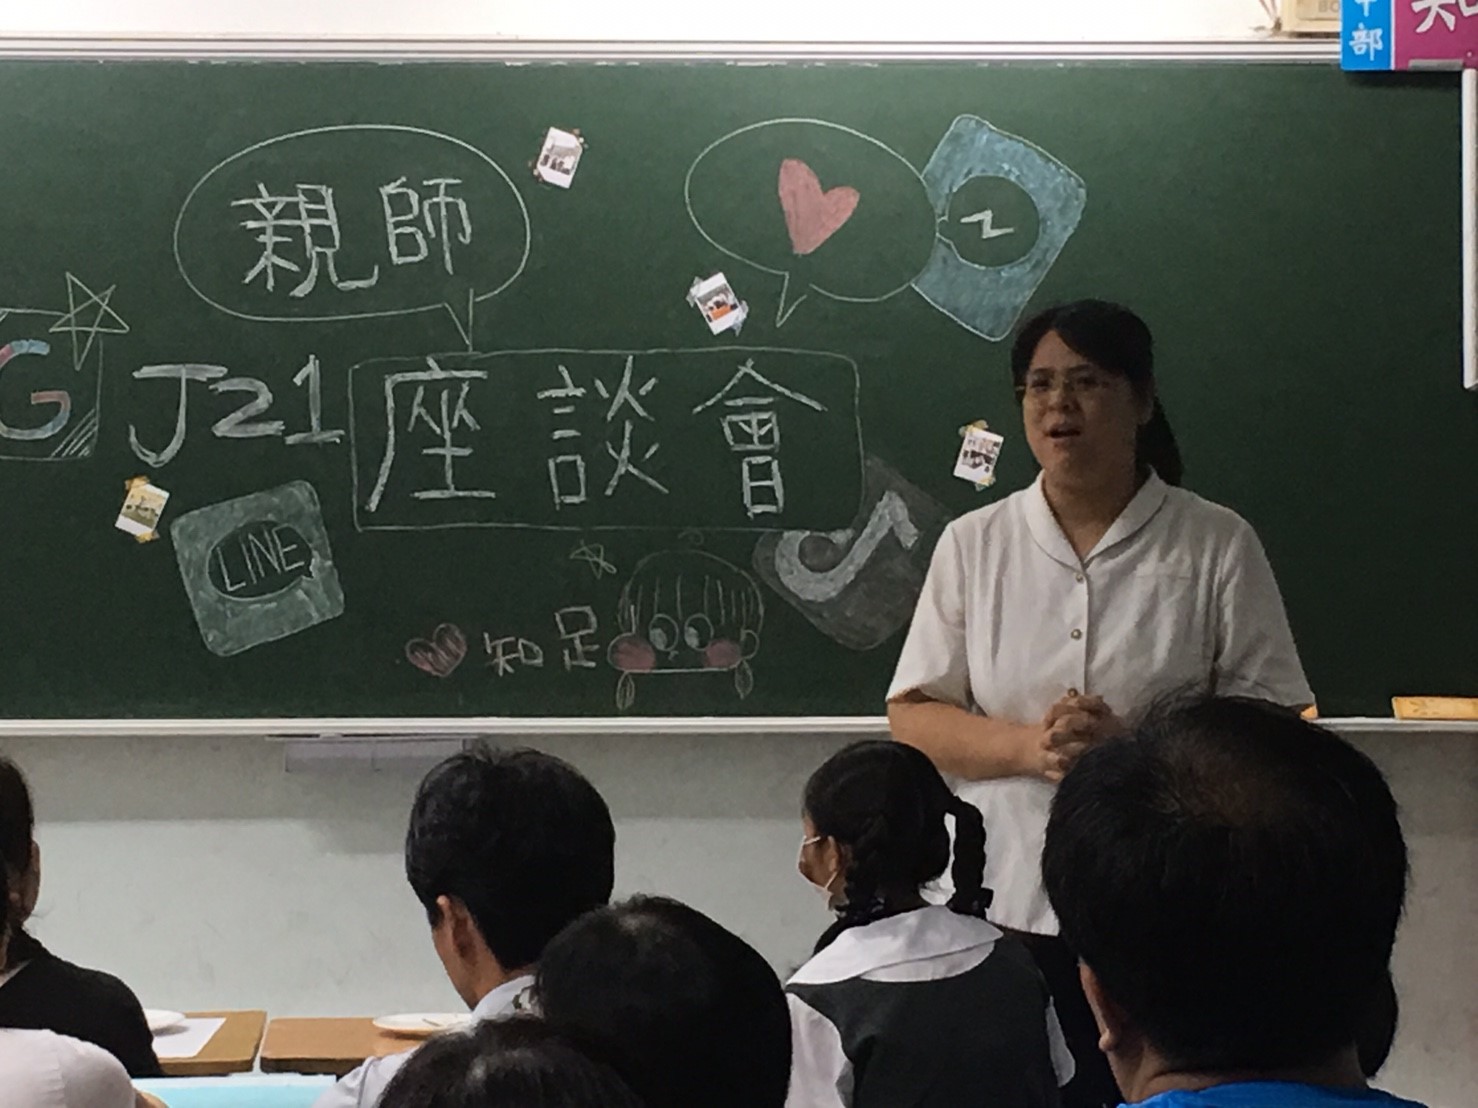 親師
J21 座談會
G
LINE
知足
部